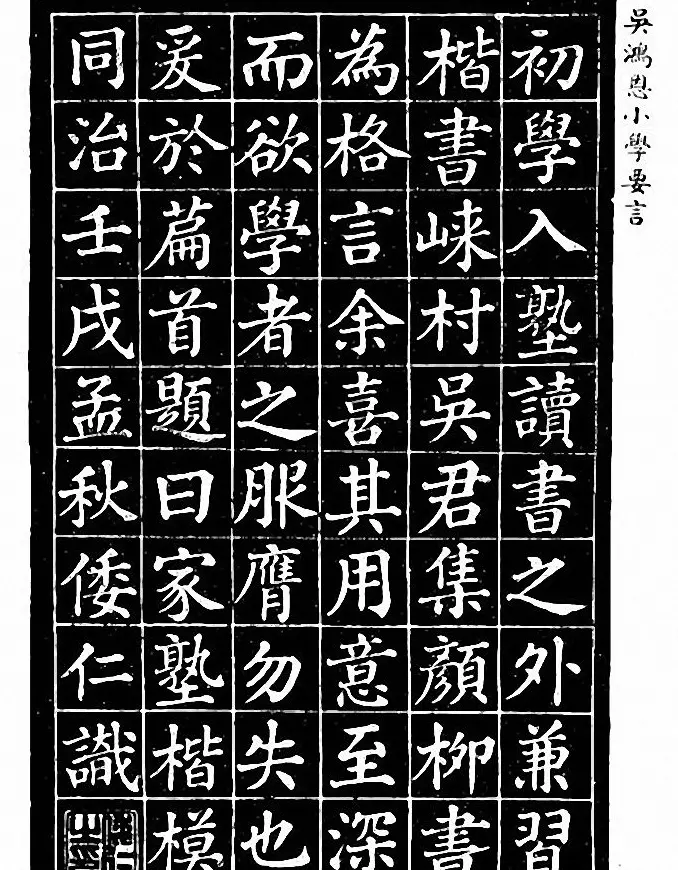 吳鴻恩小學要言
初學入塾讀書之外兼習
楷書崍村吳君集顏柳書
為格言余喜其用意至深
而欲學者之服膺勿失也
爰於篇首題曰家塾楷模
同治壬戌孟秋倭仁識